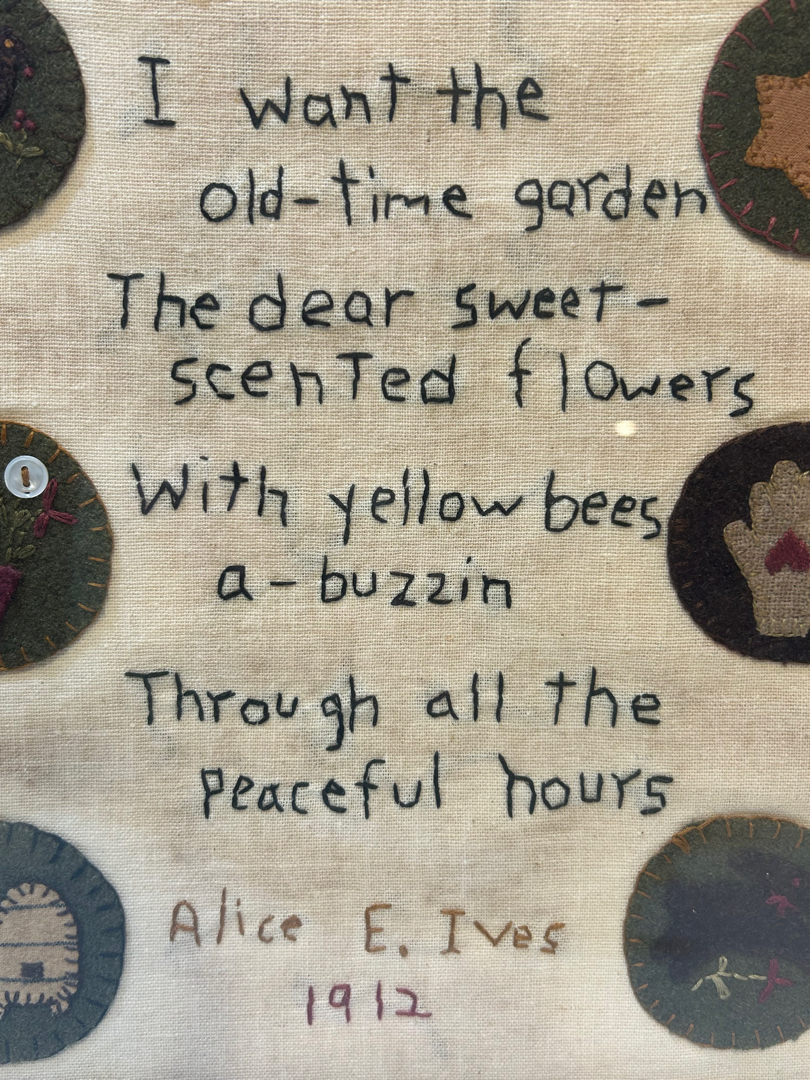 I want the
old-time garden
The dear sweet-
scented flowers
With yellow bees
a-buzzin
Through all the
peaceful hours
Alice E. Ives
1912